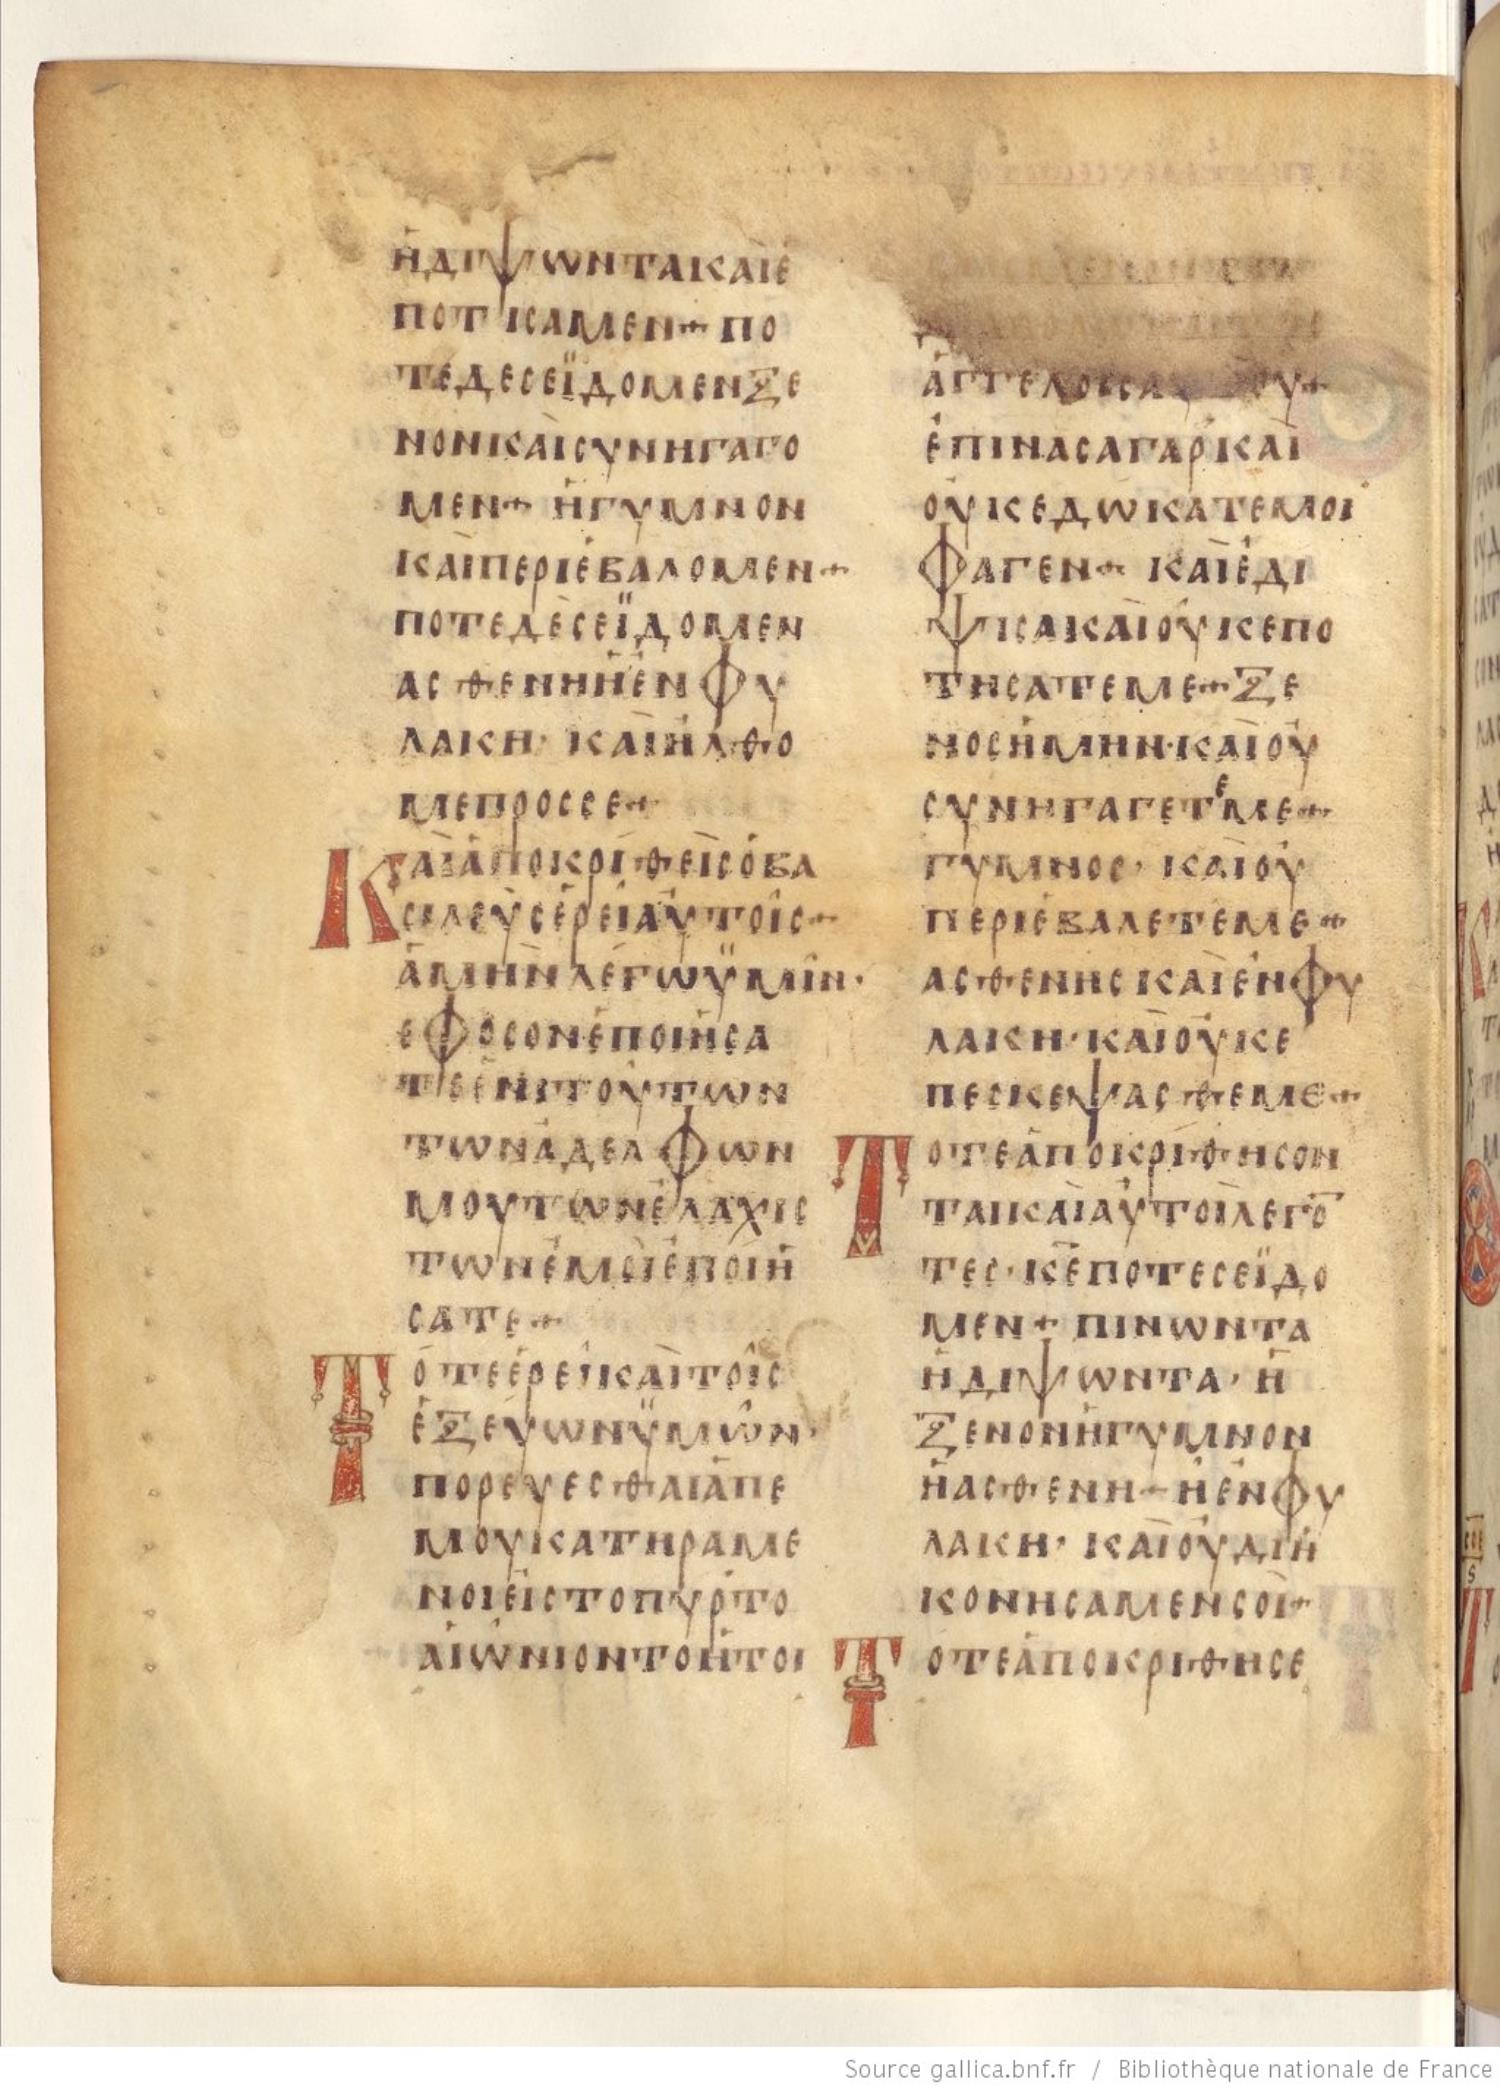 ἢ ΔΙΨΩΝΤΑ ΚΑΙ Ε
ΠΟΤΙΣΑΜΕΝ + ΠΟ
ΤΕ ΔΕ ΣΕ ΕΪΔΟΜΕΝ ΞΕ
ΝΟΝ ΚΑΙ ΣΥΝΗΓΑΓΟ
ΜΕΝ + Ἠ ΓΥΜΝΟΝ
ΚΑΙ ΠΕΡΙΕΒΑΛΟΜΕΝ +
ΠΟΤΕ ΔΕ ΣΕ ΕΪΔΟΜΕΝ
ΑΣΘΕΝΗ Ἠ ΕΝ ΦΥ
ΛΑΚΗ · ΚΑΙ ΗΛΘΟ
ΜΕ ΠΡΟΣ ΣΕ +
ΚΑΙ ΑΠΟΚΡΙΘΕΙΣ Ο ΒΑ
ΣΙΛΕΥΣ ΕΡΕΙ ΑΥΤΟΙΣ +
ΑΜΗΝ ΛΕΓΩ ΫΜΙΝ ·
ΕΦ ΟΣΟΝ ΕΠΟΙΗΣΑ
ΤΕ ΕΝΙ ΤΟΥΤΩΝ
ΤΩΝ ΑΔΕΛΦΩΝ
ΜΟΥ ΤΩΝ ΕΛΑΧΙΣ
ΤΩΝ ΕΜΟΙ ΕΠΟΙΗ
ΣΑΤΕ +
ΤΟΤΕ ΕΡΕΙ ΚΑΙ ΤΟΙΣ
ΕΞ ΕΥΩΝΫΜΩΝ ·
ΠΟΡΕΥΕΣΘΑΙ ΑΠ Ε
ΜΟΥ ΚΑΤΗΡΑΜΕ
ΝΟΙ ΕΙΣ ΤΟ ΠΥΡ ΤΟ
ΑΙΩΝΙΟΝ ΤΟ ΗΤΟΙ
ΑΓΓΕΛΟΙΣ Α
ΕΠΙΝΑΣΑ ΓΑΡ ΚΑΙ
ΟΥΚ ΕΔΩΚΑΤΕ ΜΟΙ
ΦΑΓΕΝ + ΚΑΙ ΕΔΙ
ΨΙΣΑ ΚΑΙ ΟΥΚ ΕΠΟ
ΤΗΣΑΤΕ ΜΕ + ΞΕ
ΝΟΣ ΗΜΗΝ · ΚΑΙ ΟΥ
ΣΥΝΗΓΑΓΕΤΕ ΜΕ +
ΓΥΜΝΟΣ · ΚΑΙ ΟΥ
ΠΕΡΙΕΒΑΛΕΤΕ ΜΕ +
ΑΣΘΕΝΗΣ ΚΑΙ ΕΝ ΦΥ
ΛΑΚΗ · ΚΑΙ ΟΥΚ Ε
ΠΕΣΚΕΨΑΣΘΕ ΜΕ +
ΤΟΤΕ ΑΠΟΚΡΙΘΗΣΟΝ
ΤΑΙ ΚΑΙ ΑΥΤΟΙ ΛΕΓΟ̅
ΤΕΣ · Κ̅Ε̅ ΠΟΤΕ ΣΕ ΕΪΔΟ
ΜΕΝ + ΠΙΝΩΝΤΑ
Ἠ ΔΙΨΩΝΤΑ · Ἠ
ΞΕΝΟΝ Ἠ ΓΥΜΝΟΝ
Ἠ ΑΣΘΕΝΗ + Ἠ ΕΝ ΦΥ
ΛΑΚΗ · ΚΑΙ ΟΥ ΔΙΗ
ΚΟΝΗΣΑΜΕΝ ΣΟΙ +
ΤΟΤΕ ΑΠΟΚΡΙΘΗΣΕ
Source gallica.bnf.fr / Bibliothèque nationale de France